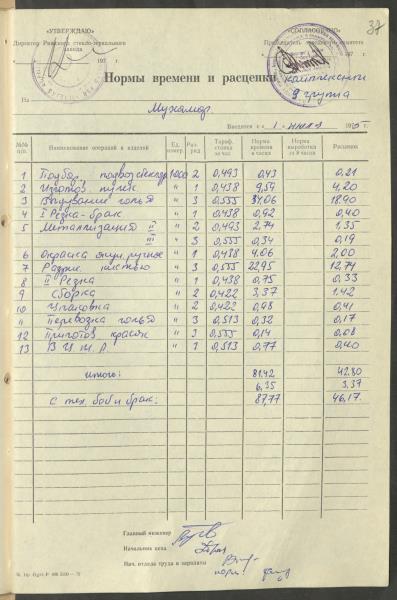 37
«УТВЕРЖДАЮ»
Директор Рижского стекло-зеркального
завода
197 г.
«СОГЛАСОВАНО»
Председатель комитета
197 г.
Нормы времени и расценки
комплексной
группа
На Мухомор.
Вводятся с « 1 » июля 1975 г.
№№ п/п. Наименование операций и изделий Ед. измер. Раз-ряд Тариф. ставка за час Норма времени в часах Норма выработки за 8 часов Расценок
1 Подбор, подвоз 1000 2 0,493 0,43 0,21
2 Изготов пулек " 1 0,438 9,59 4,20
3 Выдувание голья " 3 0,555 34,06 18,90
4 I Резка-брак " 1 0,438 0,92 0,40
5 Металлизация II " 2 0,493 2,74 1,35
III " 3 0,555 0,34 0,19
6 Окраска ручное " 1 0,438 4,06 2,00
7 Разрис. кистью " 3 0,555 22,95 12,74
8 II Резка " 1 0,438 0,75 0,33
9 Сборка " 2 0,422 3,37 1,42
10 Упаковка " 2 0,422 0,98 0,41
11 Перевозка голья " 3 0,513 0,32 0,17
12 Приготов красок " 3 0,555 0,14 0,08
13 " 1 0,513 0,77 0,40
Итого: 81,42 42,80
6,35 3,37
С тех. боб и брак: 87,77 46,17
Главный инженер
Начальник цеха
Нач. отдела труда и зарплаты